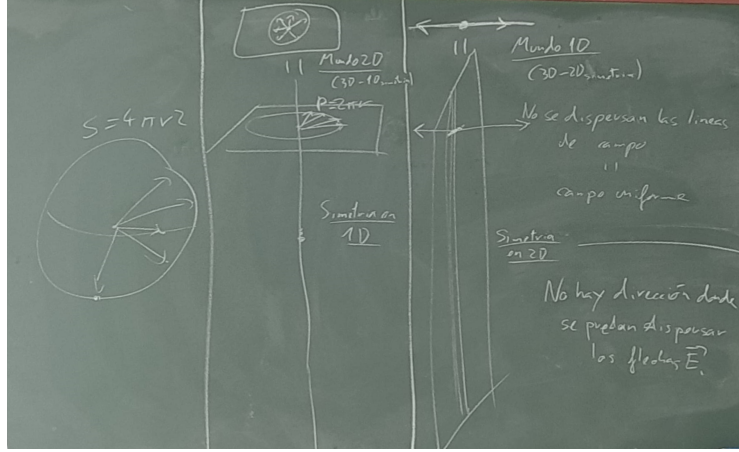 S = 4πr²
Mundo 2D
(3D-1D simetria)
P=2πr
Simetria en
1D
Mundo 1D
(3D-2D simetria)
No se dispersan las lineas
de campo
campo uniforme
Simetria
en 2D
No hay dirección donde
se puedan dispersar
las flechas E⃗.